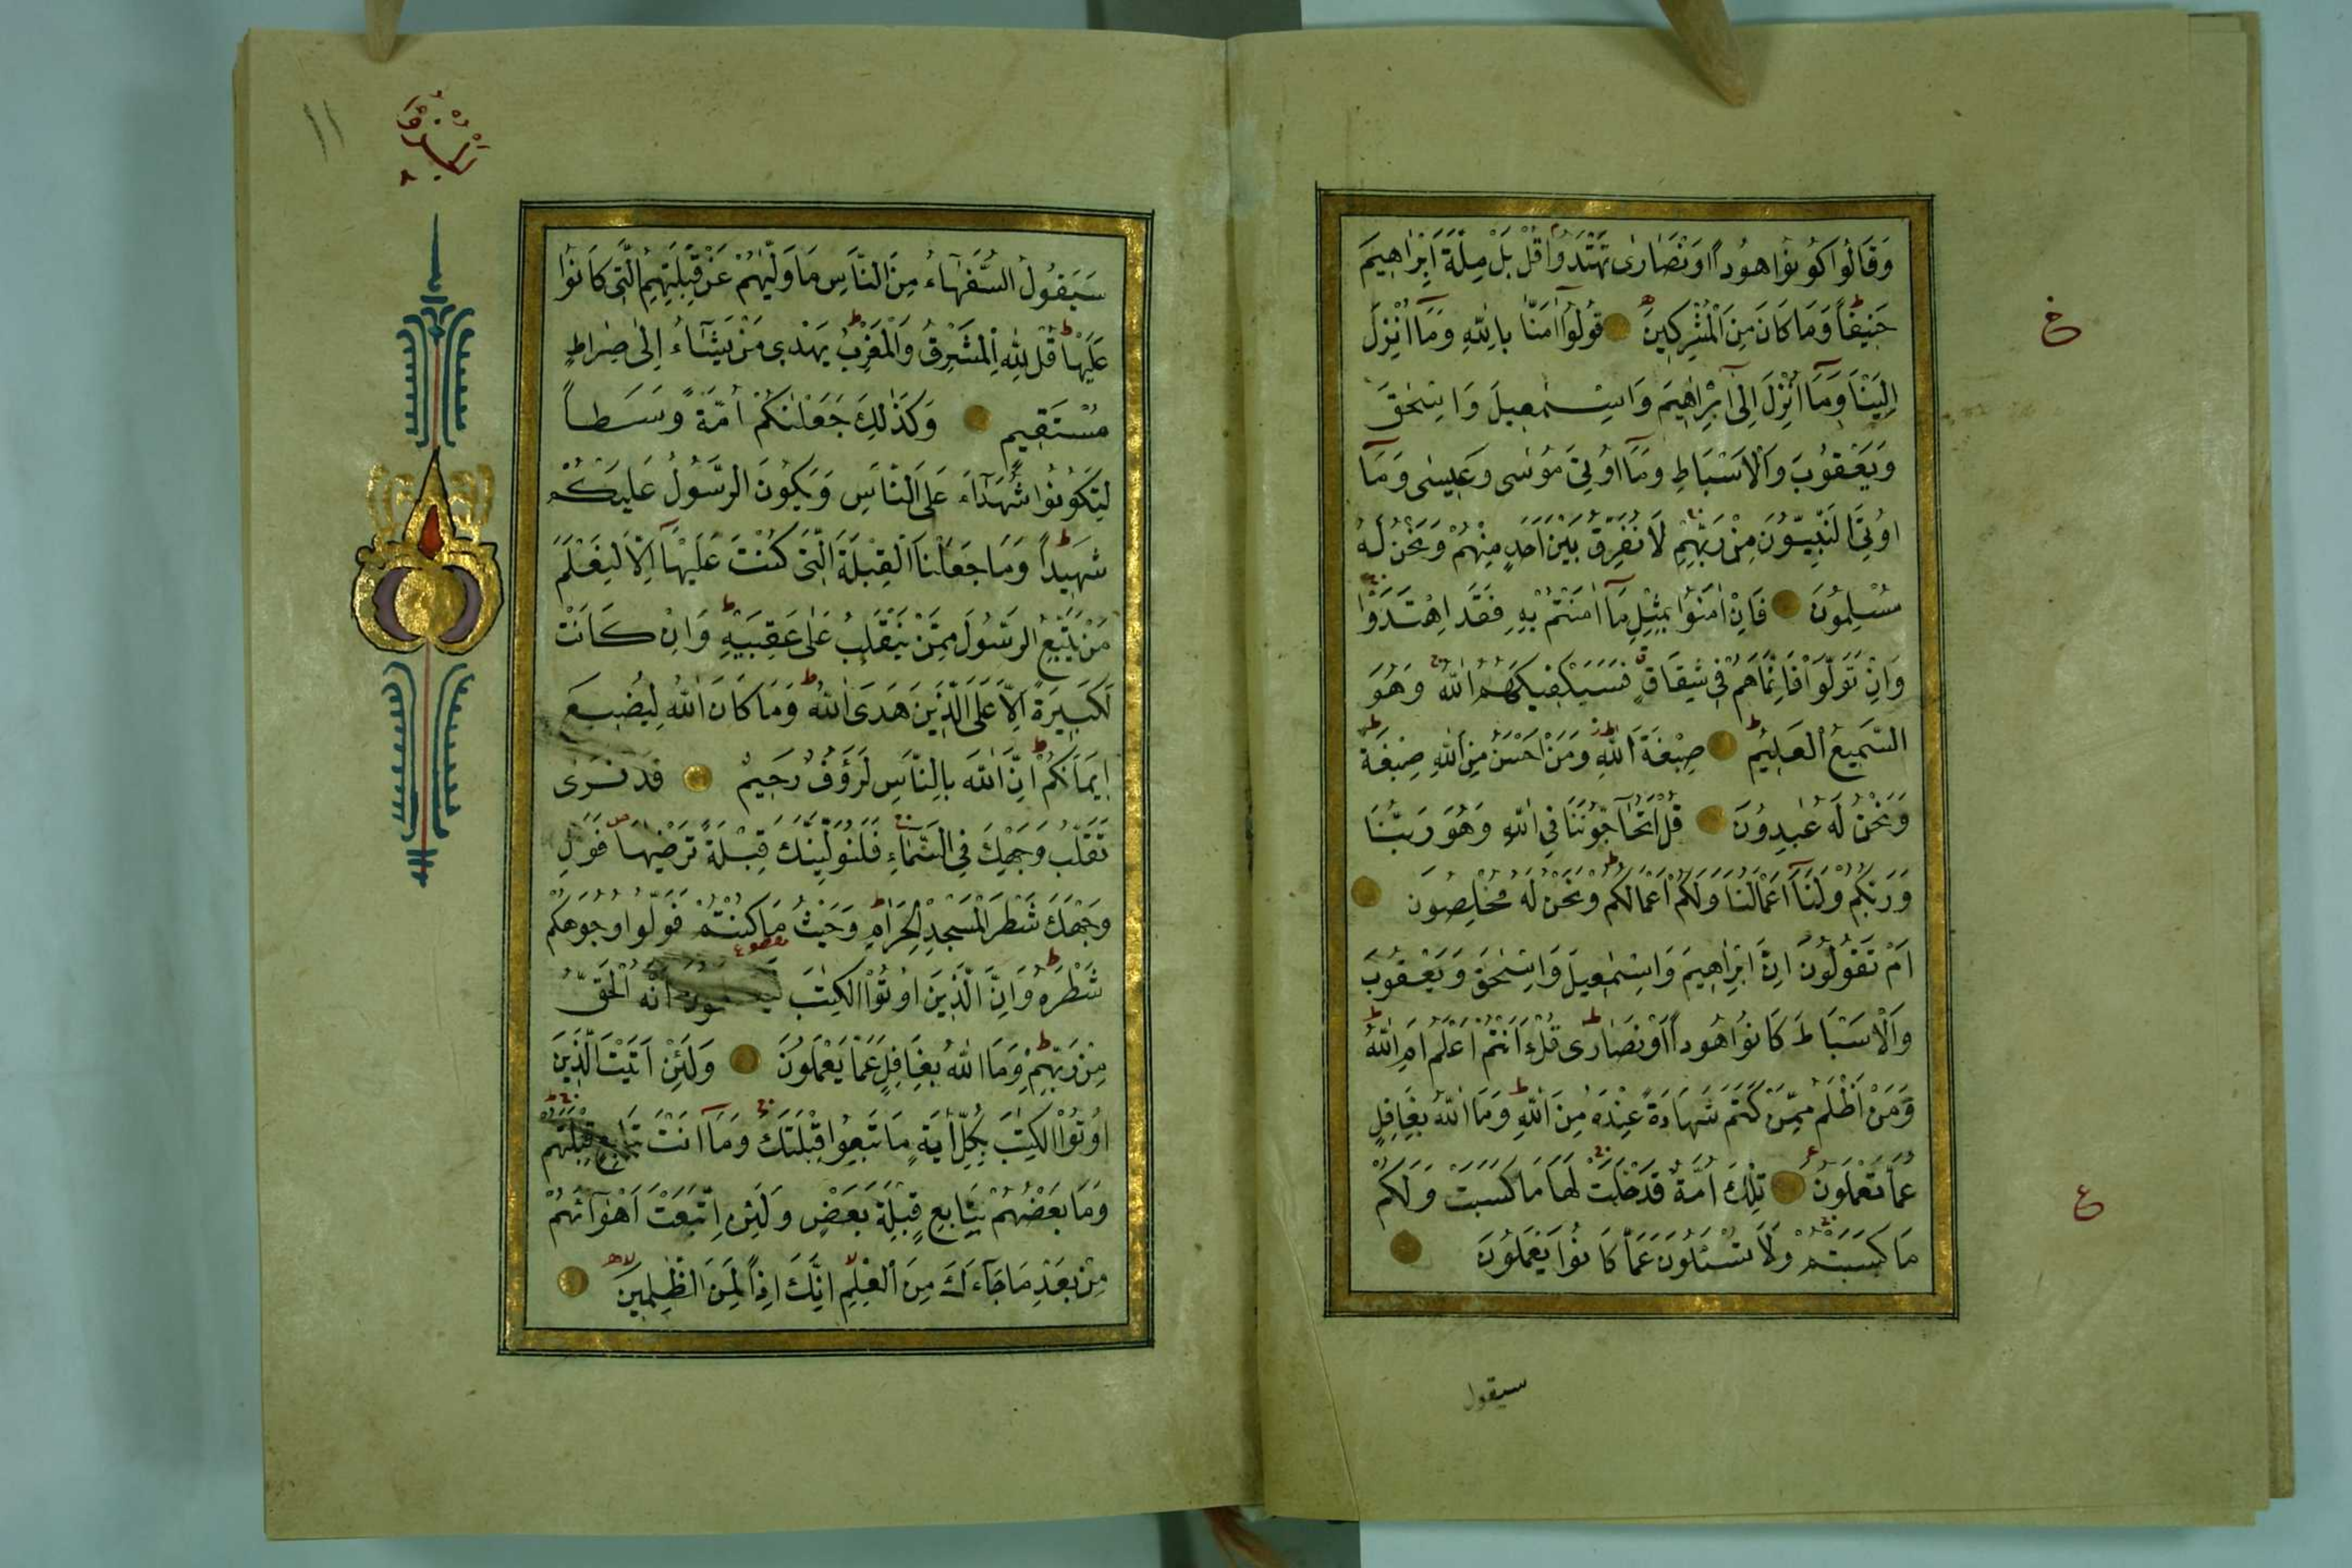 وَقَالُوا كُونُوا هُودًا اَوْ نَصَارٰى تَهْتَدُوا قُلْ بَلْ مِلَّةَ اِبْرٰاهِيمَ
حَنِيفًا وَمَا كَانَ مِنَ الْمُشْرِكِينَ قُولُوا اٰمَنَّا بِاللّٰهِ وَمَا اُنْزِلَ
اِلَيْنَا وَمَا اُنْزِلَ اِلٰى اِبْرٰاهِيمَ وَاِسْمٰعِيلَ وَاِسْحٰقَ
وَيَعْقُوبَ وَالْاَسْبَاطِ وَمَا اُوتِيَ مُوسٰى وَعِيسٰى وَمَا
اُوتِيَ النَّبِيُّونَ مِنْ رَبِّهِمْ لَا نُفَرِّقُ بَيْنَ اَحَدٍ مِنْهُمْ وَنَحْنُ لَهُ
مُسْلِمُونَ فَاِنْ اٰمَنُوا بِمِثْلِ مَا اٰمَنْتُمْ بِهِ فَقَدِ اهْتَدَوْا
وَاِنْ تَوَلَّوْا فَاِنَّمَا هُمْ فِي شِقَاقٍ فَسَيَكْفِيكَهُمُ اللّٰهُ وَهُوَ
السَّمِيعُ الْعَلِيمُ صِبْغَةَ اللّٰهِ وَمَنْ اَحْسَنُ مِنَ اللّٰهِ صِبْغَةً
وَنَحْنُ لَهُ عٰبِدُونَ قُلْ اَتُحَاجُّونَنَا فِي اللّٰهِ وَهُوَ رَبُّنَا
وَرَبُّكُمْ وَلَنَا اَعْمَالُنَا وَلَكُمْ اَعْمَالُكُمْ وَنَحْنُ لَهُ مُخْلِصُونَ
اَمْ تَقُولُونَ اِنَّ اِبْرٰاهِيمَ وَاِسْمٰعِيلَ وَاِسْحٰقَ وَيَعْقُوبَ
وَالْاَسْبَاطَ كَانُوا هُودًا اَوْ نَصَارٰى قُلْ ءَاَنْتُمْ اَعْلَمُ اَمِ اللّٰهُ
وَمَنْ اَظْلَمُ مِمَّنْ كَتَمَ شَهَادَةً عِنْدَهُ مِنَ اللّٰهِ وَمَا اللّٰهُ بِغَافِلٍ
عَمَّا تَعْمَلُونَ تِلْكَ اُمَّةٌ قَدْ خَلَتْ لَهَا مَا كَسَبَتْ وَلَكُمْ
مَا كَسَبْتُمْ وَلَا تُسْئَلُونَ عَمَّا كَانُوا يَعْمَلُونَ
سيقول
ع
١١
سَيَقُولُ السُّفَهَاءُ مِنَ النَّاسِ مَا وَلّٰيهُمْ عَنْ قِبْلَتِهِمُ الَّتِي كَانُوا
عَلَيْهَا قُلْ لِلّٰهِ الْمَشْرِقُ وَالْمَغْرِبُ يَهْدِي مَنْ يَشَاءُ اِلٰى صِرَاطٍ
مُسْتَقِيمٍ وَكَذٰلِكَ جَعَلْنٰكُمْ اُمَّةً وَسَطًا
لِتَكُونُوا شُهَدَاءَ عَلَى النَّاسِ وَيَكُونَ الرَّسُولُ عَلَيْكُمْ
شَهِيدًا وَمَا جَعَلْنَا الْقِبْلَةَ الَّتِي كُنْتَ عَلَيْهَا اِلَّا لِنَعْلَمَ
مَنْ يَتَّبِعُ الرَّسُولَ مِمَّنْ يَنْقَلِبُ عَلٰى عَقِبَيْهِ وَاِنْ كَانَتْ
لَكَبِيرَةً اِلَّا عَلَى الَّذِينَ هَدَى اللّٰهُ وَمَا كَانَ اللّٰهُ لِيُضِيعَ
اِيمَانَكُمْ اِنَّ اللّٰهَ بِالنَّاسِ لَرَؤُفٌ رَحِيمٌ قَدْ نَرٰى
تَقَلُّبَ وَجْهِكَ فِي السَّمَاءِ فَلَنُوَلِّيَنَّكَ قِبْلَةً تَرْضٰيهَا فَوَلِّ
وَجْهَكَ شَطْرَ الْمَسْجِدِ الْحَرَامِ وَحَيْثُ مَا كُنْتُمْ فَوَلُّوا وُجُوهَكُمْ
شَطْرَهُ وَاِنَّ الَّذِينَ اُوتُوا الْكِتٰبَ لَيَعْلَمُونَ اَنَّهُ الْحَقُّ
مِنْ رَبِّهِمْ وَمَا اللّٰهُ بِغَافِلٍ عَمَّا يَعْمَلُونَ وَلَئِنْ اَتَيْتَ الَّذِينَ
اُوتُوا الْكِتٰبَ بِكُلِّ اٰيَةٍ مَا تَبِعُوا قِبْلَتَكَ وَمَا اَنْتَ بِتَابِعٍ قِبْلَتَهُمْ
وَمَا بَعْضُهُمْ بِتَابِعٍ قِبْلَةَ بَعْضٍ وَلَئِنِ اتَّبَعْتَ اَهْوَآئَهُمْ
مِنْ بَعْدِ مَا جَاءَكَ مِنَ الْعِلْمِ اِنَّكَ اِذًا لَمِنَ الظّٰلِمِينَ